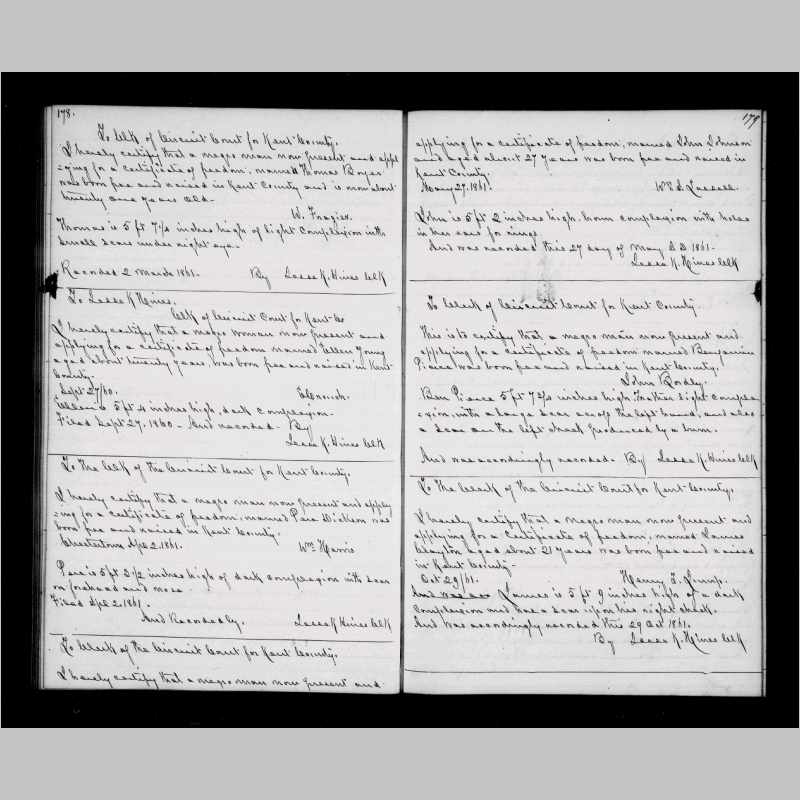 178.
To Clk of Circuit Court for Kent County.
I hereby certify that a negro man now present and appl
-ying for a certificate of freedom, named Thomas Boyer
was born free and raised in Kent County and is now about
twenty one years old-
W. Frazier.
Thomas is 5 ft 7 1/4 inches high of light complexion with
small scar under right eye-
Recorded 2 March 1861- By Jesse K. Hines Clk
To Jesse K Hines.
Clk of Circuit Court for Kent Co
I hereby certify that a negro woman now present and
applying for a certificate of freedom named Ellen Young
aged about twenty years, was born free and raised in Kent
County.
Sept 27/60.
Ellen is 5 ft 4 inches high, dark complexion-
Filed Sept 27. 1860- And recorded- By
Jesse K. Hines Clk
To the Clk of the Circuit Court for Kent County.
I hereby certify that a negro man now present and apply
-ing for a certificate of freedom, named Pere Dickson was
born free and raised in Kent County.
Chestertown Apl 2. 1861. Wm Harris
Pere is 5 ft 2 1/2 inches high of dark complexion with scar
on forehead and nose-
Filed Apl 2. 1861.
And Recorded by. Jesse K Hines Clk
To Clerk of the Circuit Court for Kent County.
I hereby certify that a negro man now present and
179
applying for a certificate of freedom, named John Johnson
and aged about 27 years was born free and raised in
Kent County.
May 27. 1861.
John is 5 ft 2 inches high. brown complexion with holes
in her ears for rings.
And was recorded this 27 day of May A D 1861-
Jesse K. Hines Clk
To Clerk of Circuit Court for Kent County.
This is to certify that a negro man now present and
applying for a certificate of freedom named Benjamin
Pierce was born free and raised in Kent County.
John
Ben Pierce 5 ft 7 3/4 inches high. rather light comple
-xion, with a large scar across the left hand, and also
a scar on the left cheek produced by a burn.
And was accordingly recorded- By Jesse K. Hines Clk
To the Clerk of the Circuit Court for Kent County.
I hereby certify that a negro man now present and
applying for a certificate of freedom, named James
Clayton aged about 21 years was born free and raised
in Kent County-
Oct 29/61. Henry
And was acc James is 5 ft 9 inches high of a dark
complexion and has a scar upon his right cheek.
And was accordingly recorded this 29 Oct 1861.
By Jesse K. Hines Clk